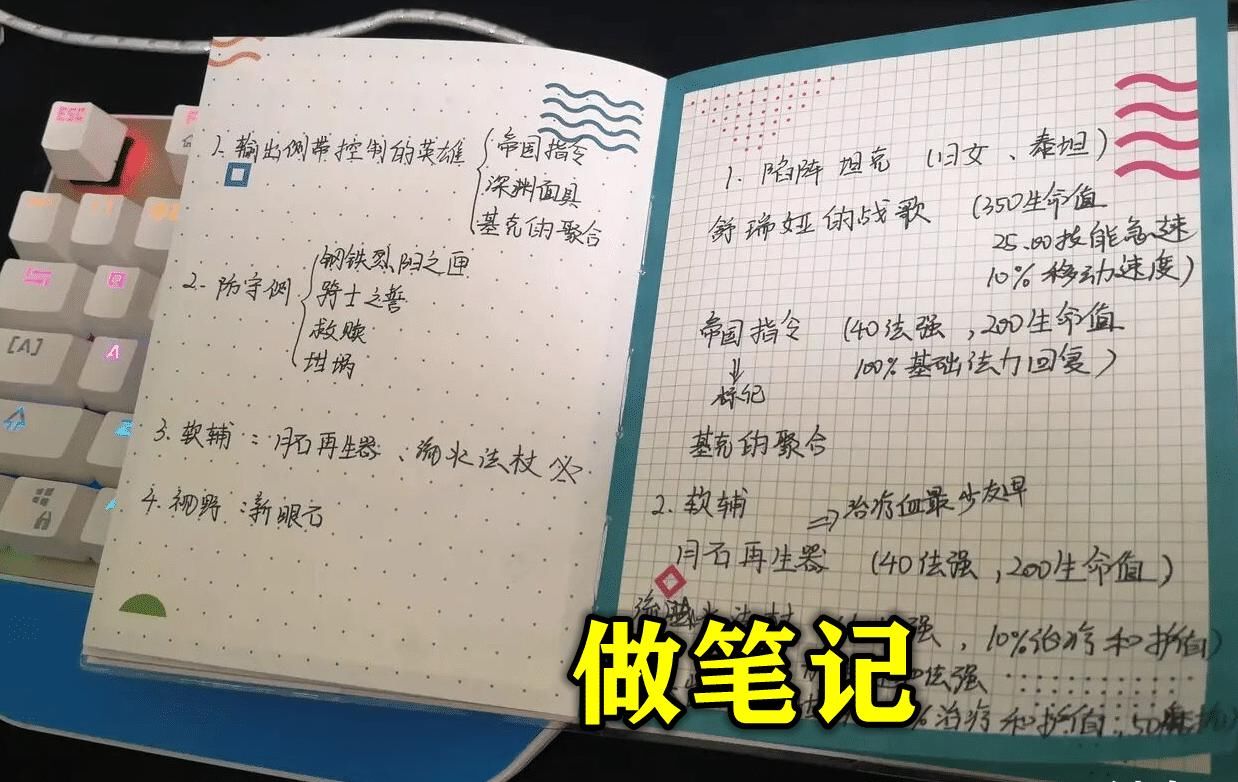 ESC
[A]
A
1. 输出侧带控制的英雄
帝国指令
深渊面具
基克的聚合
2. 防守侧
钢铁烈阳之匣
骑士之誓
救赎
坩埚
3. 软辅：月石再生器、流水法杖
4. 视野：新眼石
1. 陷阵坦克（日女、泰坦）
舒瑞娅的战歌（350生命值
25.00技能急速
10%移动速度）
帝国指令（40法强，200生命值
100%基础法力回复）
标记
基克的聚合
2. 软辅 ⇒治疗血最少友军
月石再生器（40法强，200生命值）
强，10%治疗和护盾）
法强
%治疗和护盾，50
做笔记